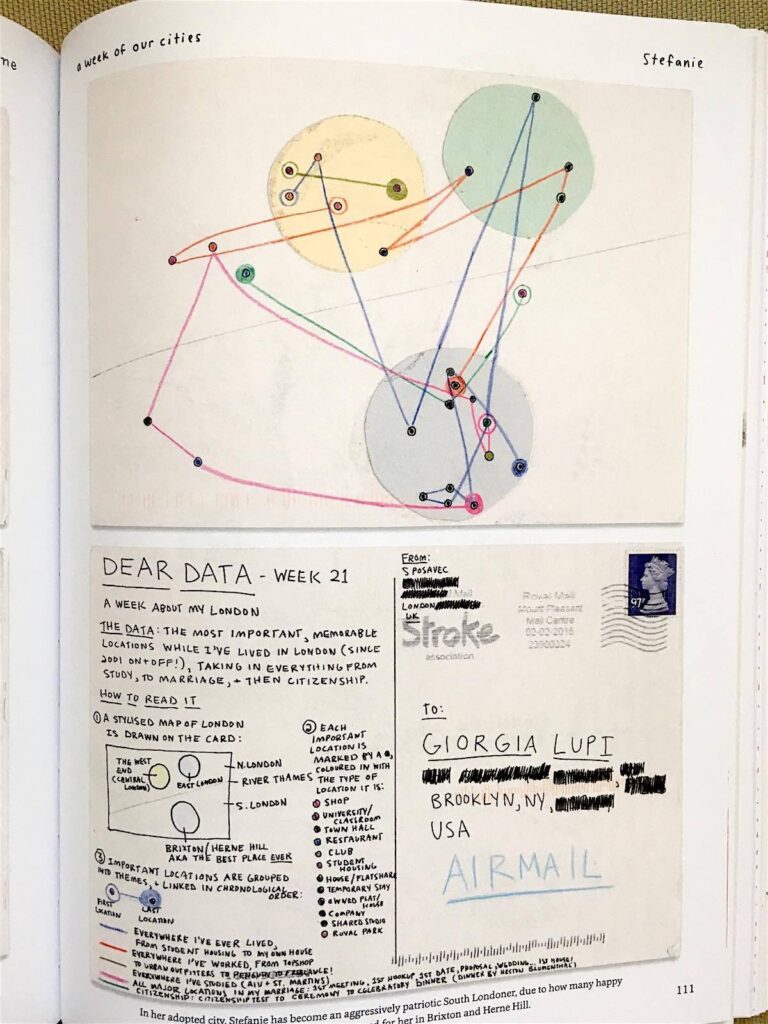 ne
a week of our cities
Stefanie
DEAR DATA - WEEK 21
A WEEK ABOUT MY LONDON
THE DATA: THE MOST IMPORTANT, MEMORABLE
LOCATIONS WHILE I'VE LIVED IN LONDON (SINCE
2001 ON + OFF!), TAKING IN EVERYTHING FROM
STUDY, TO MARRIAGE, + THEN CITIZENSHIP.
HOW TO READ IT
① A STYLISED MAP OF LONDON
IS DRAWN ON THE CARD:
THE WEST
END
(CENTRAL
LONDON)
EAST LONDON
N. LONDON
RIVER THAMES
S. LONDON
BRIXTON/HERNE HILL
AKA THE BEST PLACE EVER
② EACH
IMPORTANT
LOCATION IS
MARKED BY A ●,
COLOURED IN WITH
THE TYPE OF
LOCATION IT IS:
SHOP
UNIVERSITY/
CLASSROOM
TOWN HALL
RESTAURANT
CLUB
STUDENT
HOUSING
HOUSE/FLATSHARE
TEMPORARY STAY
OWNED FLAT/
HOUSE
COMPANY
SHARED STUDIO
ROYAL PARK
③ IMPORTANT LOCATIONS ARE GROUPED
INTO THEMES, + LINKED IN CHRONOLOGICAL
ORDER:
FIRST
LOCATION
LAST
LOCATION
EVERYWHERE I'VE EVER LIVED,
FROM STUDENT HOUSING TO MY OWN HOUSE
EVERYWHERE I'VE WORKED, FROM TOPSHOP
TO URBAN OUTFITTERS TO FREELANCE!
EVERYWHERE I'VE STUDIED (AIU + ST. MARTINS)
ALL MAJOR LOCATIONS IN MY MARRIAGE: 1ST MEETING, 1ST HOOKUP, 1ST DATE, PROPOSAL, WEDDING, 1ST HOUSE!
CITIZENSHIP: CITIZENSHIP TEST TO CEREMONY TO CELEBRATORY DINNER (DINNER BY HESTON BLUMENTHAL)
FROM:
S POSAVEC
LONDON
UK
Stroke
association
Royal Mail
Mount Pleasant
Mail Centre
02-02-2015
23900324
97P
TO:
GIORGIA LUPI
BROOKLYN, NY,
USA
AIRMAIL
111
In her adopted city, Stefanie has become an aggressively patriotic South Londoner, due to how many happy
for her in Brixton and Herne Hill.